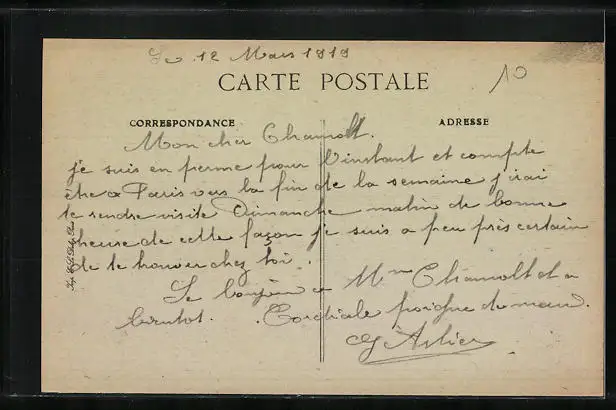 Le 12 Mars 1919
10
CARTE POSTALE
CORRESPONDANCE
ADRESSE
Mon cher Chamolt.
je suis en perme pour l'instant et compte
etre a Paris vers la fin de la semaine j'irai
te rendre visite Dimanche matin de bonne
heure de cette façon je suis a peu près certain
de te trouver chez toi.
Le bonjour a Mme Chamolt et a
bientot. Cordiale poigne de main.